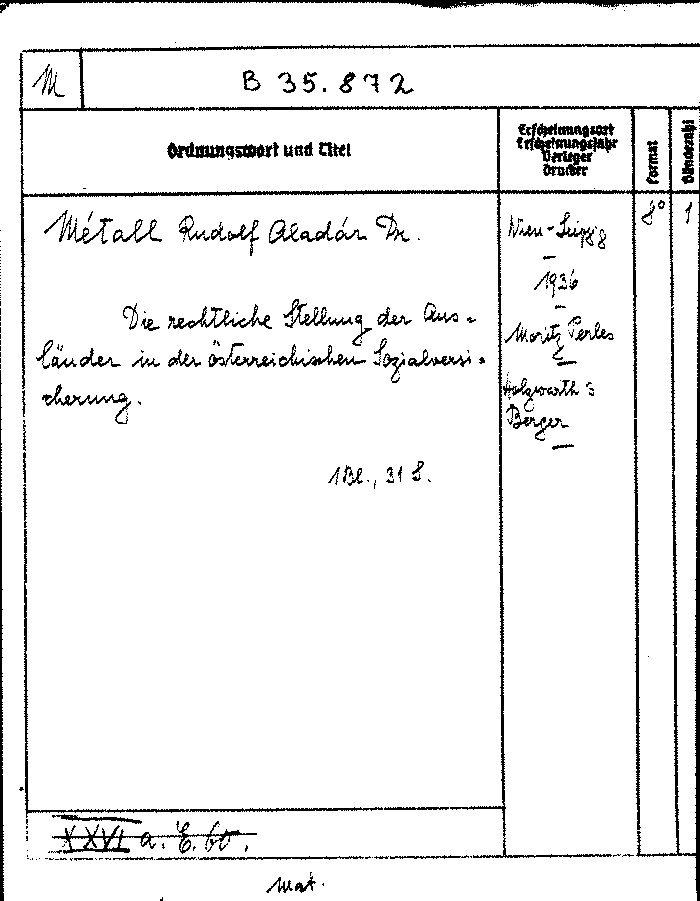 M
B 35.872
Ordnungswort und Titel
Erscheinungsort
Erscheinungsjahr
Verleger
Drucker
Format
Bändezahl
Métall Rudolf Aladár Dr.
Die rechtliche Stellung der Aus=
länder in der österreichischen Sozialversi=
cherung.
1 Bl., 31 S.
Wien-Leipzig
1936
Moritz Perles
Holzwarth &
Berger
8°
1
XXVI a. E. 60.
Mat.